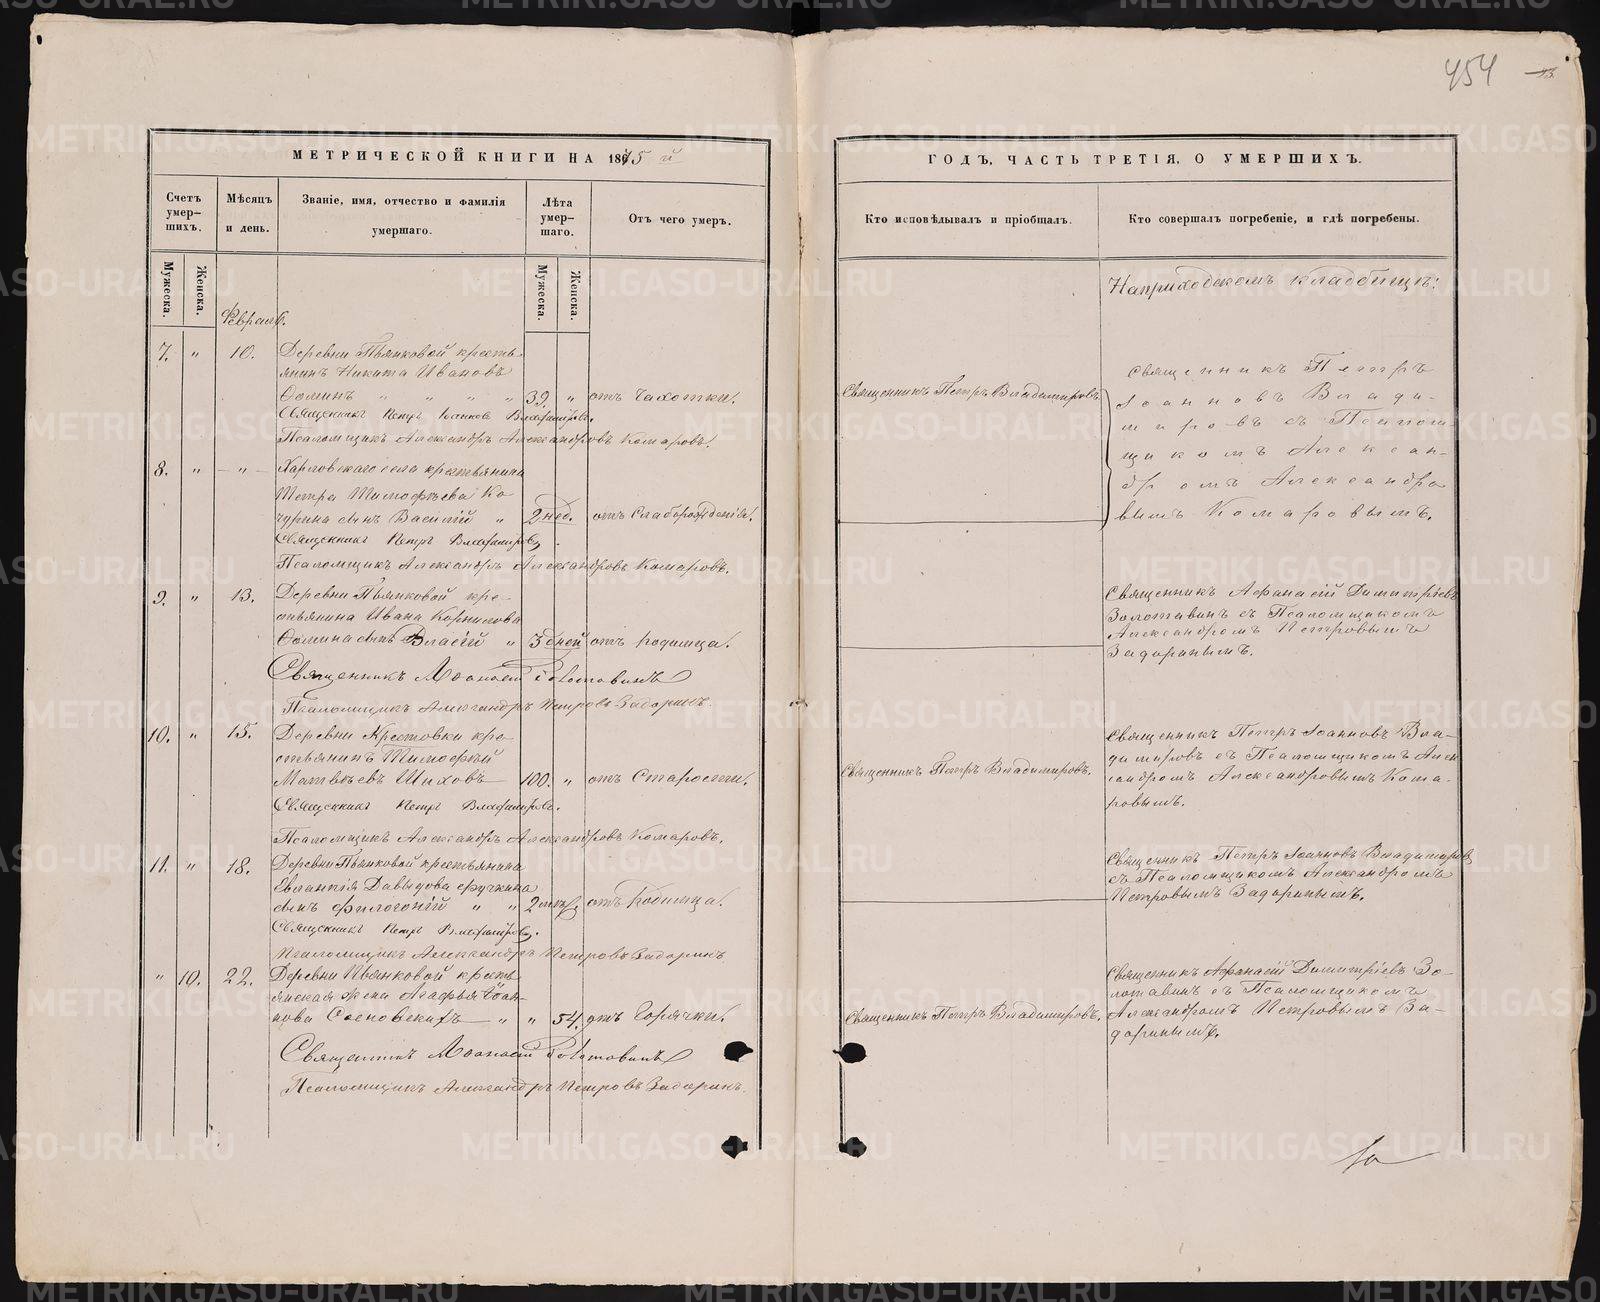 454
МЕТРИЧЕСКОЙ КНИГИ НА 1875 й
ГОДЪ, ЧАСТЬ ТРЕТІЯ, О УМЕРШИХЪ.
Счетъ умерших.
Мѣсяцъ и день.
Званіе, имя, отчество и фамилія умершаго.
Лѣта умершаго.
Отъ чего умеръ.
Кто исповѣдывалъ и пріобщалъ.
Кто совершалъ погребеніе, и гдѣ погребены.
Мужеска.
Женска.
Мужеска.
Женска.
Февраль.
На приходскомъ кладбищѣ:
7. " 10. Деревни Пьянковой кресть-
янинъ Никита Ивановъ
Ѳоминъ " " " " 39. " отъ Чахотки.
Священникъ Петръ Іоанновъ Владиміровъ.
Псаломщикъ Александръ Александровъ Комаровъ.
Священникъ Петръ Владиміровъ
Священникъ Петръ
Іоанновъ Влади-
міровъ съ Псалом-
щикомъ Алексан-
дромъ Александро
вымъ Комаровымъ.
8. " - " - Харловскаго села крестьянина
Петра Тимофѣева Ко
чурина сынъ Василій " 2 нед. отъ Слаборожденія.
Священникъ Петръ Владиміровъ
Псаломщикъ Александръ Александровъ Комаровъ.
9. " 13. Деревни Пьянковой кре-
стьянина Ивана Корнилова
Ѳомина сынъ Власій " 3 дней отъ Родимца.
Священникъ Аѳанасій Золотавинъ
Псаломщикъ Александръ Петровъ Задоринъ.
Священникъ Афанасій Димитріевъ
Золотавинъ съ Псаломщикомъ
Александромъ Петровымъ
Задоринымъ.
10. " 15. Деревни Крестовки кре-
стьянинъ Тимофѣй
Матвѣевъ Шиховъ 100. " отъ Старости.
Священникъ Петръ Владиміровъ.
Псаломщикъ Александръ Александровъ Комаровъ.
Священникъ Петръ Владиміровъ.
Священникъ Петръ Іоанновъ Вла-
диміровъ съ Псаломщикомъ Алек
сандромъ Александровымъ Кома-
ровымъ.
11. " 18. Деревни Пьянковой крестьянина
Евлампія Давыдова
сынъ Филогоній " " 2 мѣс. отъ Родимца.
Священникъ Петръ Владиміровъ.
Псаломщикъ Александръ Петровъ Задоринъ
Священникъ Петръ Іоанновъ Владиміровъ
съ Псаломщикомъ Александромъ
Петровымъ Задоринымъ.
" 10. 22. Деревни Пьянковой кресть
янская жена Агафья Іоан-
нова Сосновскихъ " " 54. отъ Горячки.
Священникъ Аѳанасій Золотавинъ
Псаломщикъ Александръ Петровъ Задоринъ.
Священникъ Петръ Владиміровъ.
Священникъ Афанасій Димитріевъ Зо-
лотавинъ съ Псаломщикомъ
Александромъ Петровымъ За-
доринымъ.
METRIKI.GASO-URAL.RU